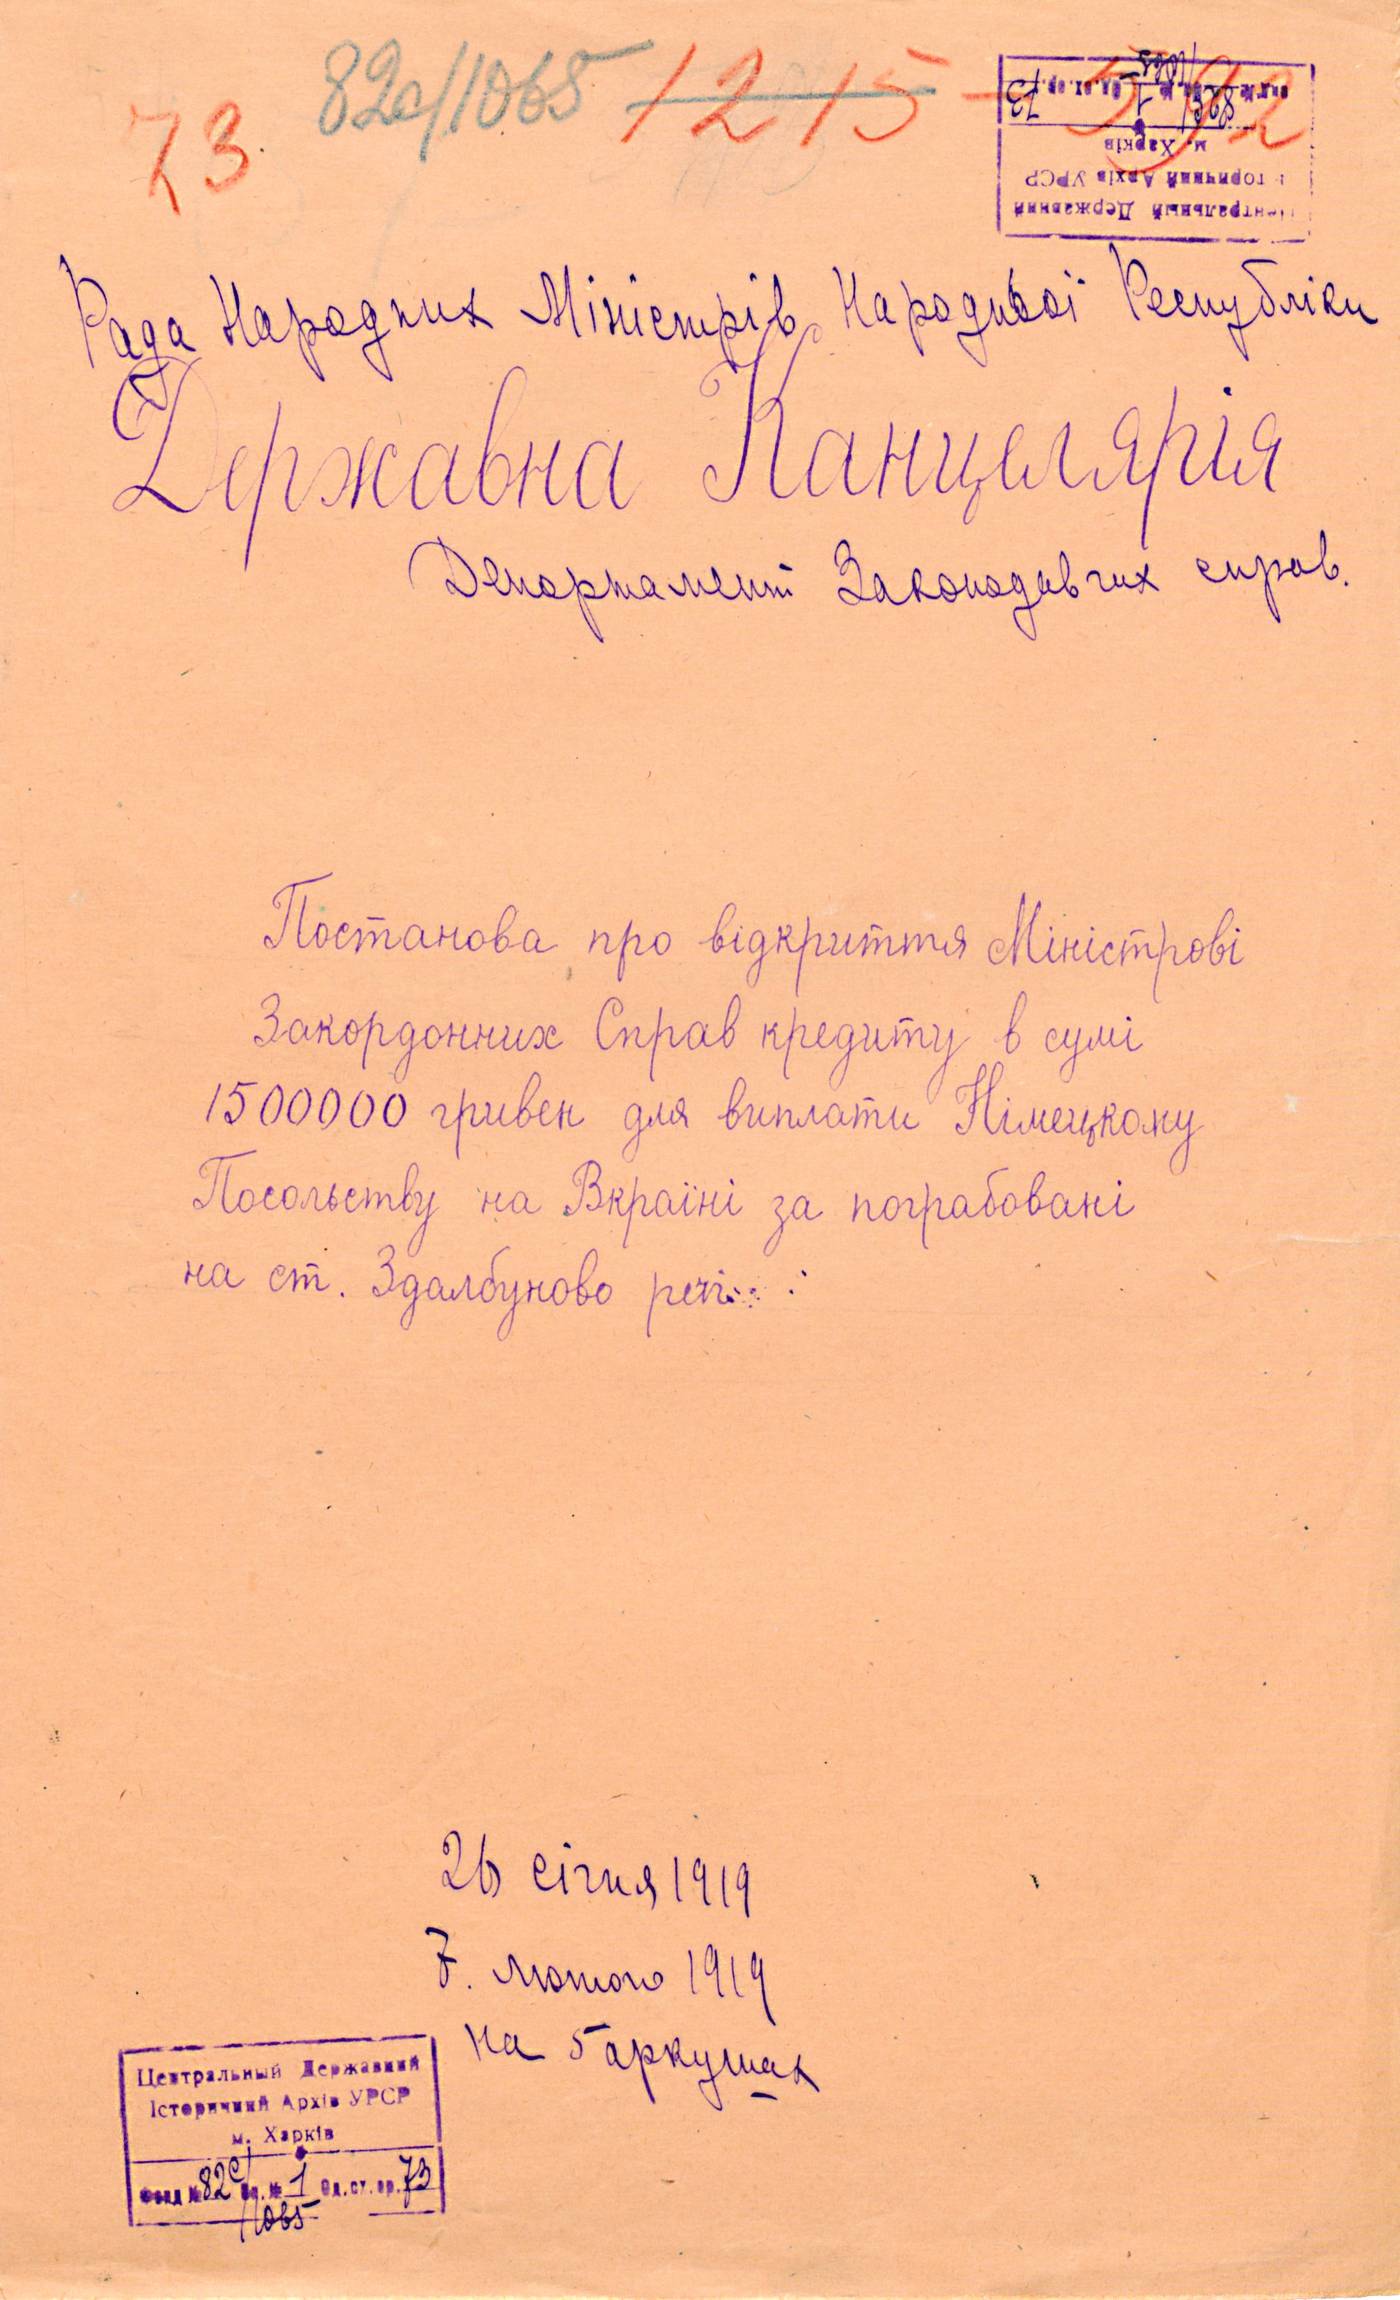 73 82с/1065 1215 - 592
Центральный Державний
Історичний Архів УРСР
м. Харків
Фонд № 82с/1065 Оп. № 1 Од.ст.ор. 73
Рада Народних Міністрів Народньої Республіки
Державна Канцелярія
Департамент Законодавчих справ.
Постанова про відкриття Міністрові
Закордонних Справ кредиту в сумі
1500000 гривен для виплати Німецкому
Посольству на Вкраїні за пограбовані
на ст. Здалбуново речі
26 січня 1919
7. лютого 1919
на 5 аркушах
Центральный Державний
Історичний Архів УРСР
м. Харків
Фонд № 82с/1065 Оп. № 1 Од.ст.ор. 73